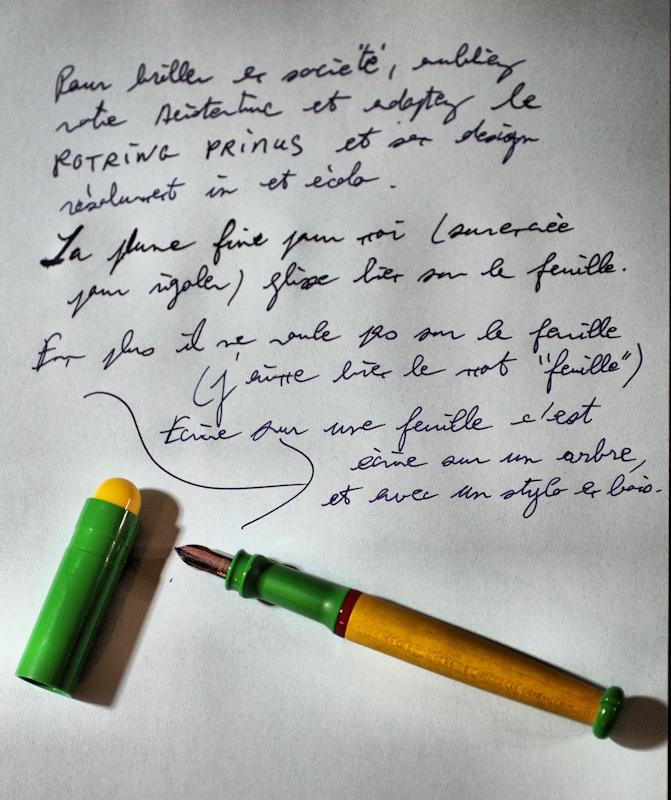 Pour briller en société, oubliez
votre Aristentic et adoptez le
ROTRING PRIMUS et ses design
résolument in et écolo.
La plume fine pour moi (surencrée
pour rigoler) glisse bien sur la feuille.
En plus il ne roule pas sur la feuille
(j'aime bien le mot "feuille")
Ecrire sur une feuille c'est
écrire sur un arbre,
et avec un stylo en bois.